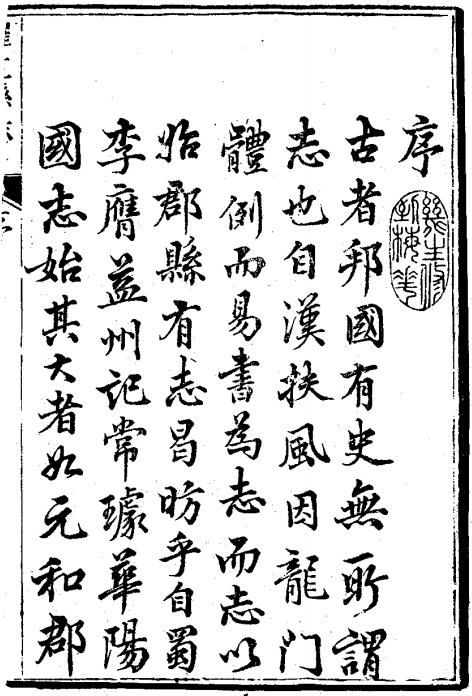 序
古者邦國有史無所謂
志也自漢扶風因龍門
體例而易書為志而志以
始郡縣有志昌昉乎自蜀
李膺益州記常璩華陽
國志始其大者如元和郡